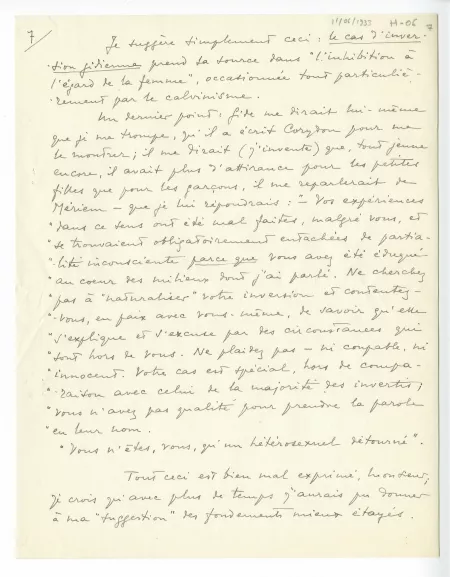 7/
11/06/1935 H-06 7
Je suggère simplement ceci : le cas d'inver-
sion gidienne prend sa source dans "l'inhibition à
l'égard de la femme", occasionnée tout particuliè-
rement par le calvinisme.
Un dernier point : Gide me dirait lui-même
que je me trompe, qu'il a écrit Corydon pour me
le montrer ; il me dirait (j'invente) que, tout jeune
encore, il avait plus d'attirance pour les petites
filles que pour les garçons, il me reparlerait de
Mériem — que je lui répondrais : "— Vos expériences
"dans ce sens ont été mal faites, malgré vous, et
"se trouvaient obligatoirement entachées de partia-
"lité inconsciente parce que vous avez été éduqué
"au coeur des milieux dont j'ai parlé. Ne cherchez
"pas à "naturaliser" votre inversion et contentez-
"vous, en paix avec vous-même, de savoir qu'elle
"s'explique et s'excuse par des circonstances qui
"sont hors de vous. Ne plaidez pas — ni coupable, ni
"innocent. Votre cas est spécial, hors de compa-
"raison avec celui de la majorité des invertis ;
"vous n'avez pas qualité pour prendre la parole
"en leur nom.
"Vous n'êtes, vous, qu'un hétérosexuel détourné".
Tout ceci est bien mal exprimé, Monsieur,
je crois qu'avec plus de temps j'aurais pu donner
à ma "suggestion" des fondements mieux étayés.